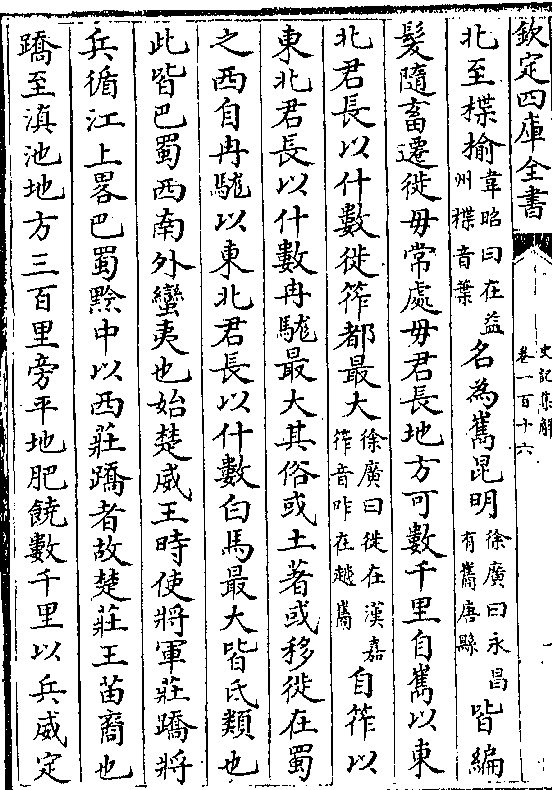 欽定四庫全書
史記集解
卷一百十六
北至楪榆韋昭曰在益州楪音葉名為嶲昆明徐廣曰永昌有嶲唐縣皆編
髮隨畜遷徙毋常處毋君長地方可數千里自嶲以東
北君長以什數徙筰都最大徐廣曰徙在漢嘉筰音昨在越嶲自筰以
東北君長以什數冉駹最大其俗或土著或移徙在蜀
之西自冉駹以東北君長以什數白馬最大皆氐類也
此皆巴蜀西南外蠻夷也始楚威王時使將軍莊蹻將
兵循江上畧巴蜀黔中以西莊蹻者故楚莊王苗裔也
蹻至滇池地方三百里旁平地肥饒數千里以兵威定